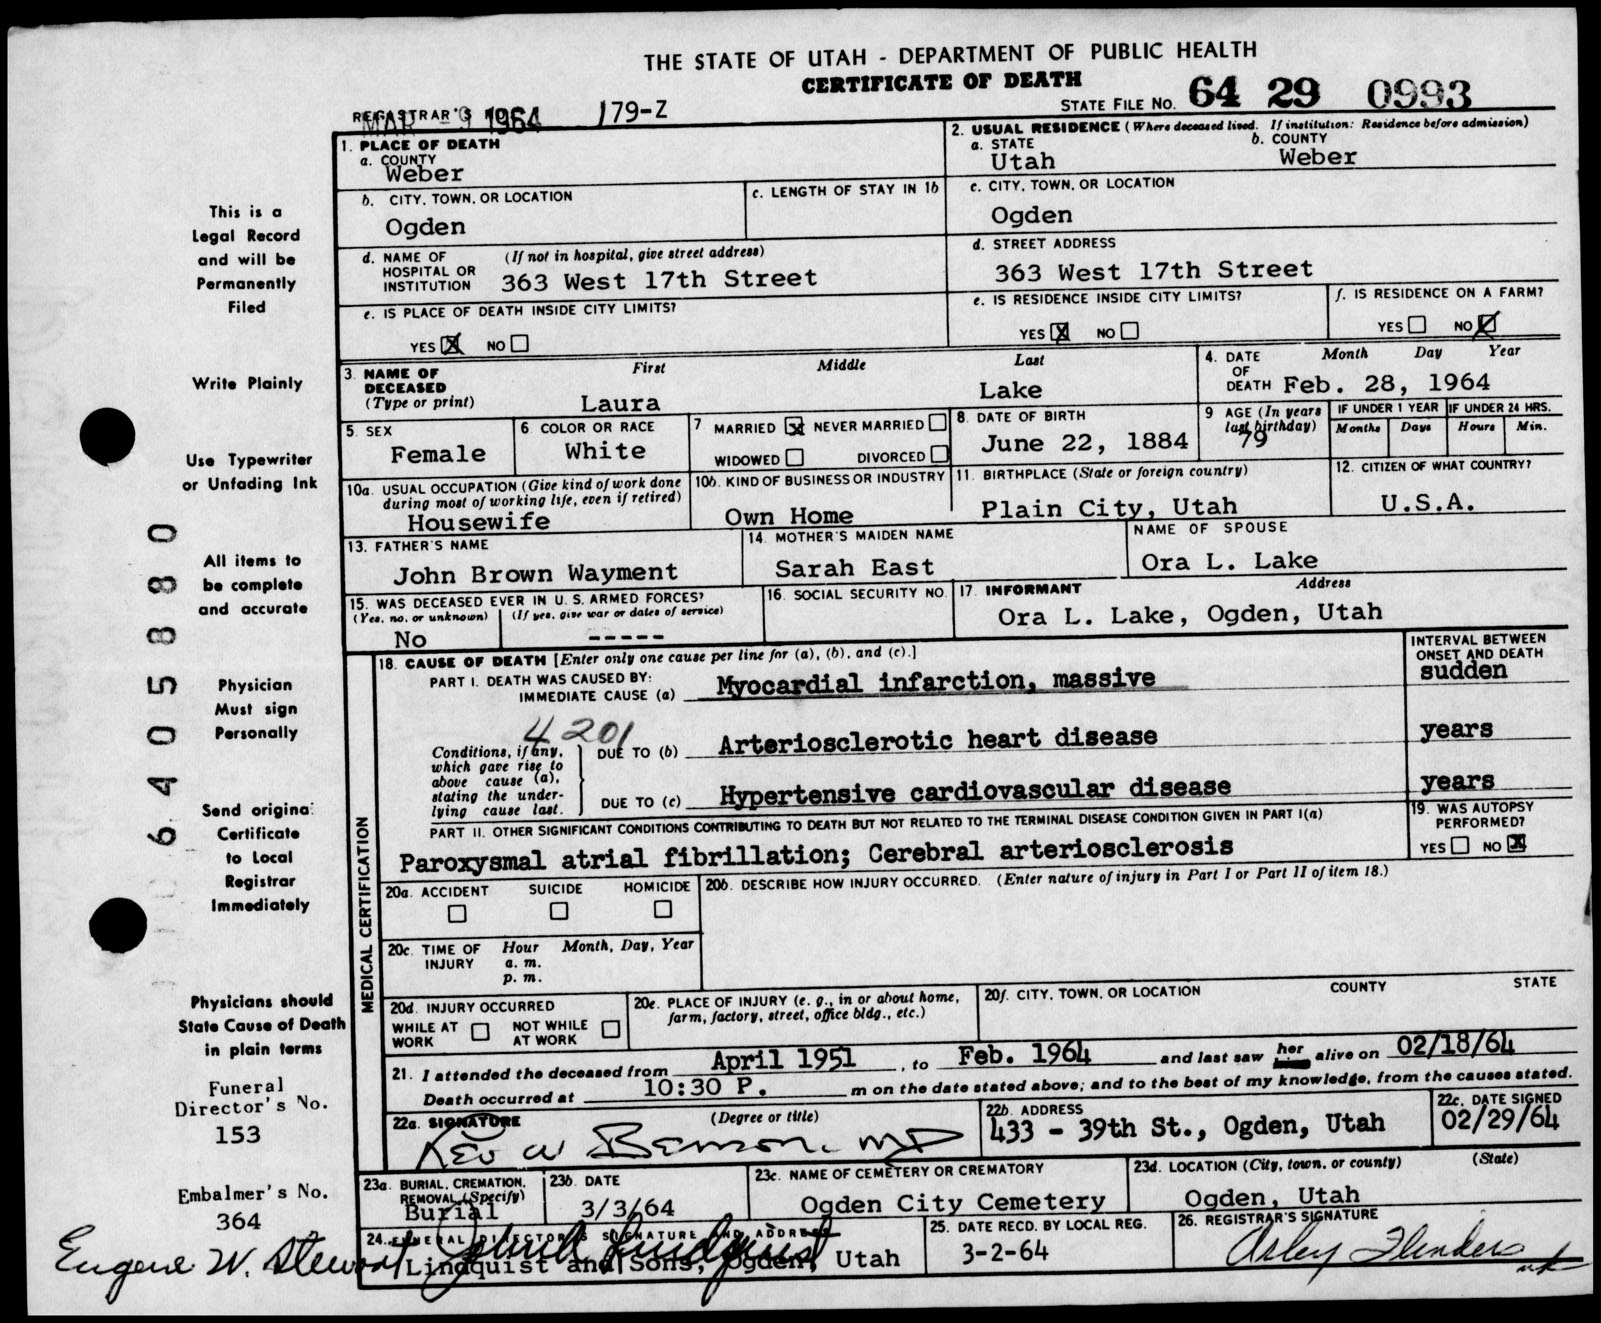 THE STATE OF UTAH - DEPARTMENT OF PUBLIC HEALTH
CERTIFICATE OF DEATH
STATE FILE NO. 64 29 0993
REGISTRAR'S NO. 179-Z
MAR - 3 1964
1. PLACE OF DEATH
a. COUNTY
Weber
2. USUAL RESIDENCE (Where deceased lived. If institution: Residence before admission)
a. STATE b. COUNTY
Utah Weber
b. CITY, TOWN, OR LOCATION
Ogden
c. LENGTH OF STAY IN 1b
c. CITY, TOWN, OR LOCATION
Ogden
d. NAME OF HOSPITAL OR INSTITUTION (If not in hospital, give street address)
363 West 17th Street
d. STREET ADDRESS
363 West 17th Street
e. IS PLACE OF DEATH INSIDE CITY LIMITS?
YES X NO
e. IS RESIDENCE INSIDE CITY LIMITS?
YES X NO
f. IS RESIDENCE ON A FARM?
YES NO X
3. NAME OF DECEASED (Type or print)
First Middle Last
Laura Lake
4. DATE OF DEATH Month Day Year
Feb. 28, 1964
5. SEX
Female
6 COLOR OR RACE
White
7 MARRIED X NEVER MARRIED
WIDOWED DIVORCED
8. DATE OF BIRTH
June 22, 1884
9 AGE (In years last birthday)
79
IF UNDER 1 YEAR IF UNDER 24 HRS.
Months Days Hours Min.
10a. USUAL OCCUPATION (Give kind of work done during most of working life, even if retired)
Housewife
10b. KIND OF BUSINESS OR INDUSTRY
Own Home
11. BIRTHPLACE (State or foreign country)
Plain City, Utah
12. CITIZEN OF WHAT COUNTRY?
U.S.A.
13. FATHER'S NAME
John Brown Wayment
14. MOTHER'S MAIDEN NAME
Sarah East
NAME OF SPOUSE
Ora L. Lake
15. WAS DECEASED EVER IN U. S. ARMED FORCES?
(Yes, no, or unknown) (If yes, give war or dates of service)
No -----
16. SOCIAL SECURITY NO.
17. INFORMANT Address
Ora L. Lake, Ogden, Utah
MEDICAL CERTIFICATION
18. CAUSE OF DEATH [Enter only one cause per line for (a), (b), and (c).]
INTERVAL BETWEEN ONSET AND DEATH
PART I. DEATH WAS CAUSED BY:
IMMEDIATE CAUSE (a) Myocardial infarction, massive sudden
4201
Conditions, if any, which gave rise to above cause (a), stating the under-lying cause last.
DUE TO (b) Arteriosclerotic heart disease years
DUE TO (c) Hypertensive cardiovascular disease years
PART II. OTHER SIGNIFICANT CONDITIONS CONTRIBUTING TO DEATH BUT NOT RELATED TO THE TERMINAL DISEASE CONDITION GIVEN IN PART I(a)
Paroxysmal atrial fibrillation; Cerebral arteriosclerosis
19. WAS AUTOPSY PERFORMED?
YES NO X
20a. ACCIDENT SUICIDE HOMICIDE
20b. DESCRIBE HOW INJURY OCCURRED. (Enter nature of injury in Part I or Part II of item 18.)
20c. TIME OF INJURY Hour Month, Day, Year
a. m.
p. m.
20d. INJURY OCCURRED
WHILE AT WORK NOT WHILE AT WORK
20e. PLACE OF INJURY (e. g., in or about home, farm, factory, street, office bldg., etc.)
20f. CITY, TOWN, OR LOCATION COUNTY STATE
21. I attended the deceased from April 1951, to Feb. 1964 and last saw her alive on 02/18/64
Death occurred at 10:30 P. m on the date stated above; and to the best of my knowledge, from the causes stated.
22a. SIGNATURE (Degree or title)
Rex W Benson MD
22b. ADDRESS
433 - 39th St., Ogden, Utah
22c. DATE SIGNED
02/29/64
23a. BURIAL, CREMATION, REMOVAL (Specify)
Burial
23b. DATE
3/3/64
23c. NAME OF CEMETERY OR CREMATORY
Ogden City Cemetery
23d. LOCATION (City, town, or county) (State)
Ogden, Utah
24. FUNERAL DIRECTOR'S SIGNATURE AND ADDRESS
Lindquist and Sons, Ogden, Utah
25. DATE RECD. BY LOCAL REG.
3-2-64
26. REGISTRAR'S SIGNATURE
Flinders
This is a
Legal Record
and will be
Permanently
Filed
Write Plainly
Use Typewriter
or Unfading Ink
All items to
be complete
and accurate
Physician
Must sign
Personally
Send original
Certificate
to Local
Registrar
Immediately
Physicians should
State Cause of Death
in plain terms
Funeral
Director's No.
153
Embalmer's No.
364
Eugene W. Stewart
6405880